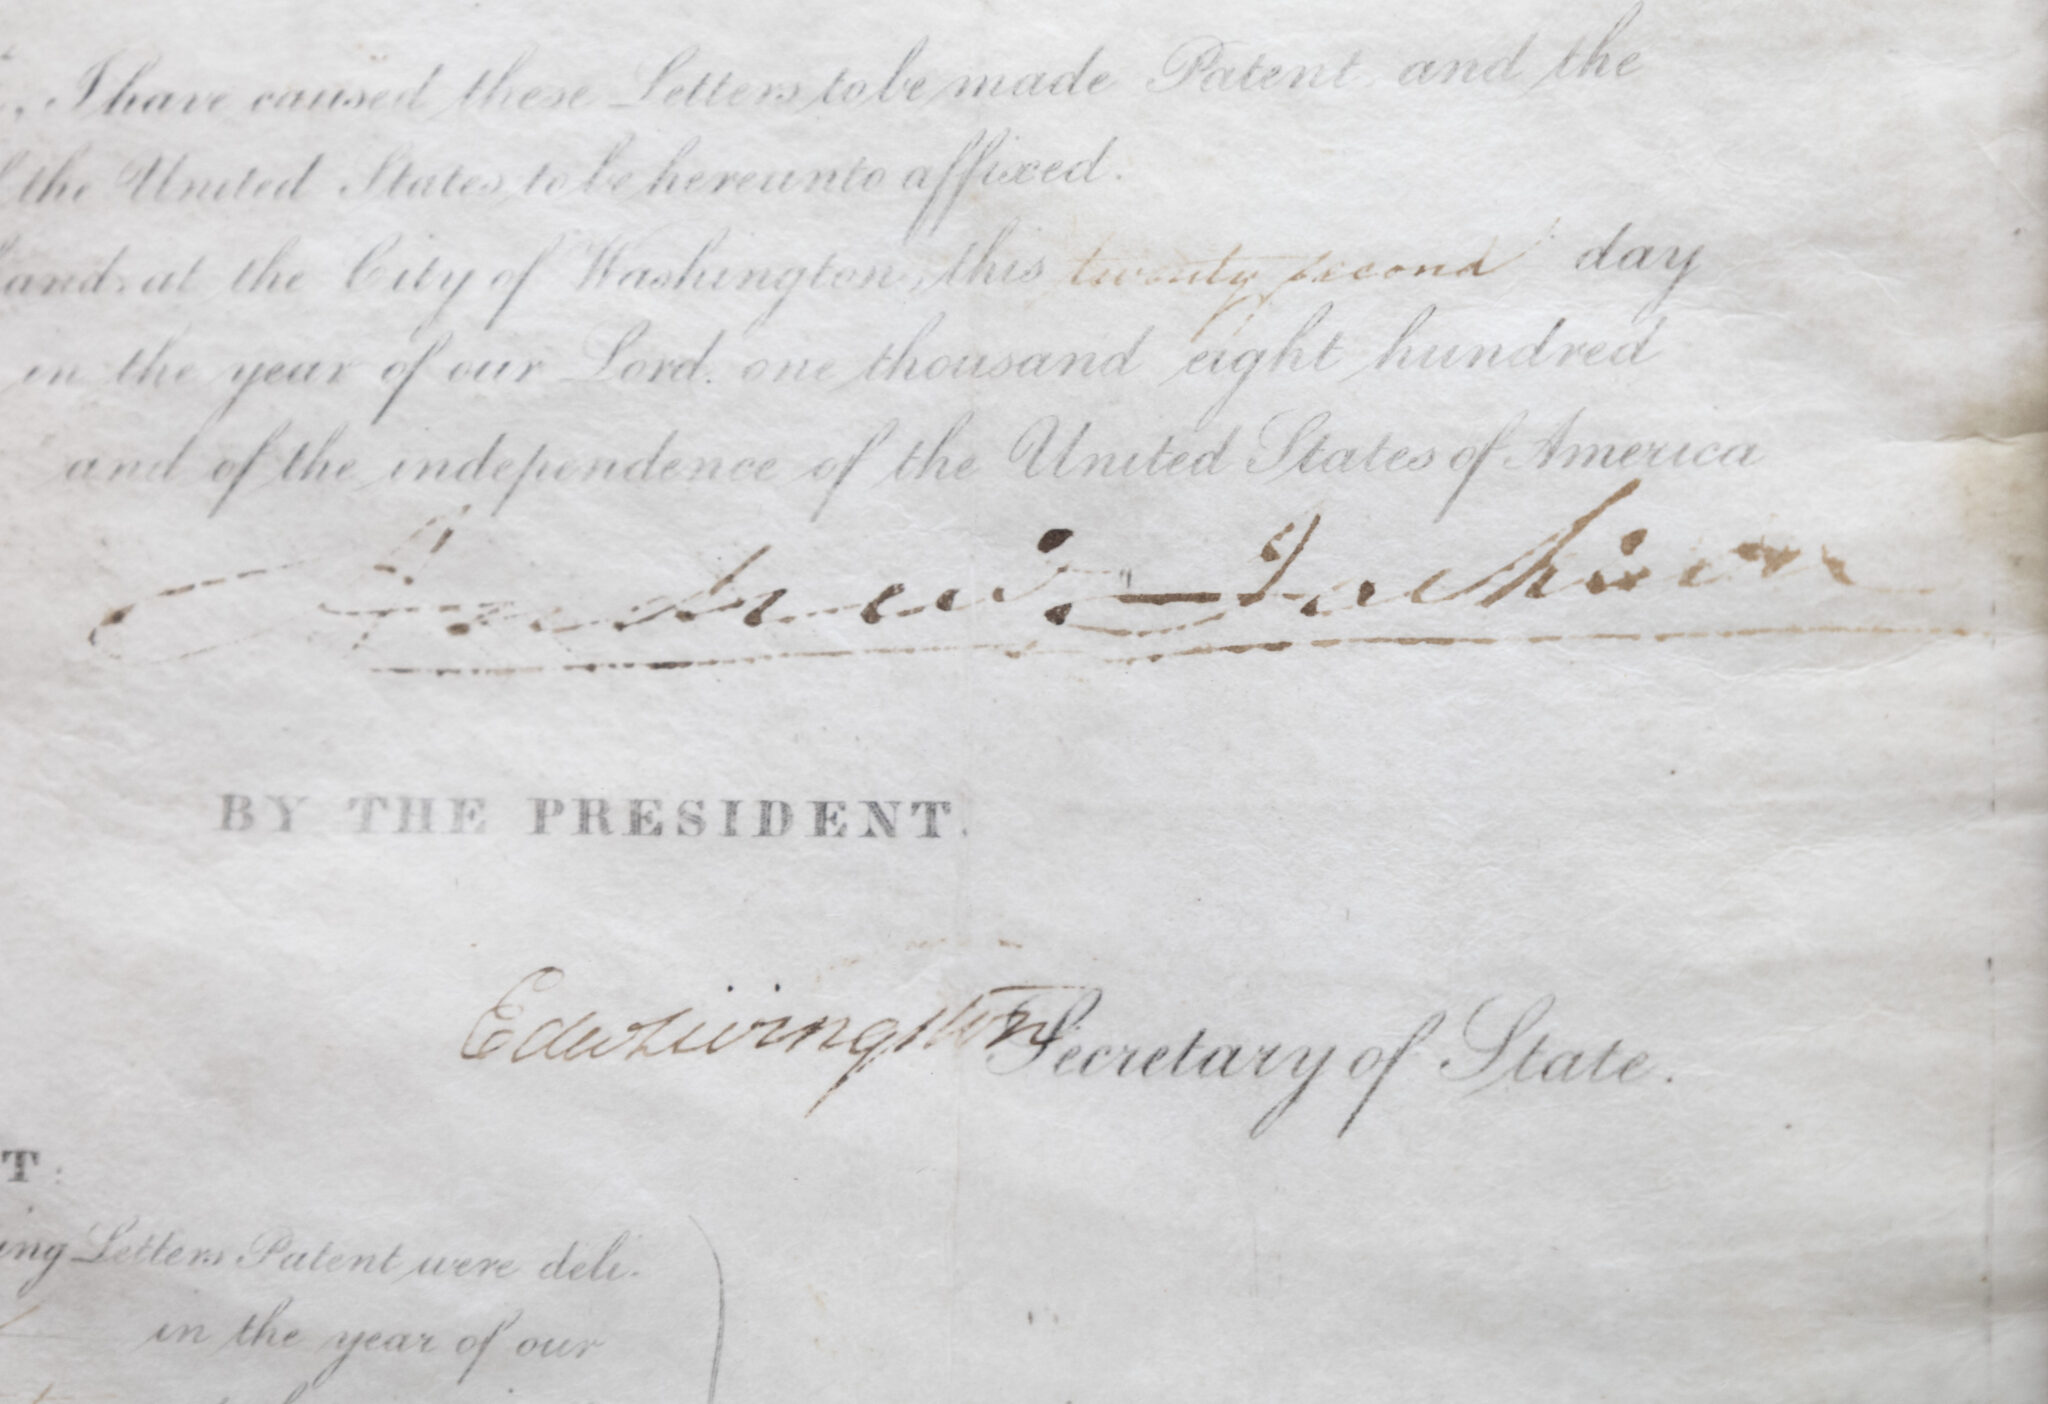 , I have caused these Letters to be made Patent, and the
the United States to be hereunto affixed.
and, at the City of Washington, this twenty second day
in the year of our Lord, one thousand eight hundred
and of the independence of the United States of America
Andrew Jackson
BY THE PRESIDENT.
Edw Livingston Secretary of State.
T:
ing Letters Patent were deli-
in the year of our